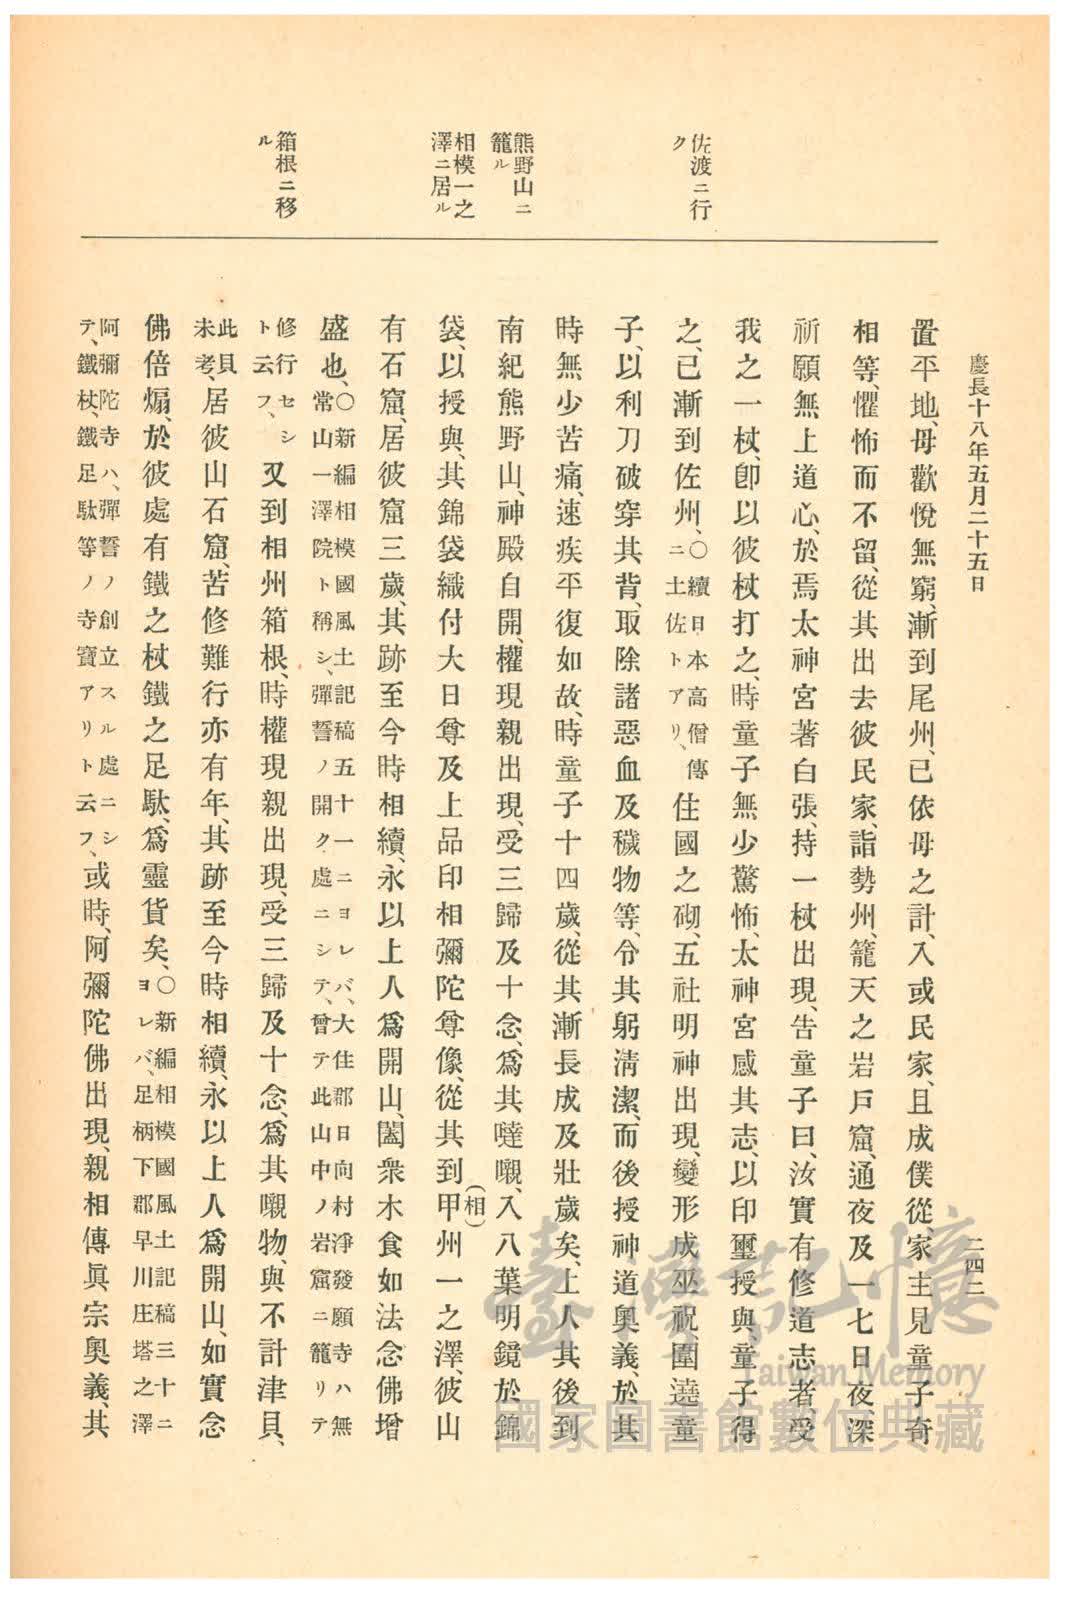 慶長十八年五月二十五日
二四二
佐渡ニ行
ク
熊野山ニ
籠ル
相模一之
澤ニ居ル
箱根ニ移
ル
置平地、母歡悅無窮、漸到尾州、已依母之計、入或民家、且成僕從、家主見童子奇
相等、懼怖而不留、從其出去彼民家、詣勢州、籠天之岩戶窟、通夜及一七日夜、深
祈願無上道心、於焉太神宮著白張、持一杖出現、告童子曰、汝實有修道志者受
我之一杖、卽以彼杖打之、時童子無少驚怖、太神宮感其志、以印璽授與、童子得
之、已漸到佐州、〇續日本高僧傳
ニ土佐トアリ、住國之砌、五社明神出現、變形成巫祝、圍遶童
子、以利刀破穿其背、取除諸惡血及穢物等、令其躬淸潔、而後授神道奧義、於其
時無少苦痛、速疾平復如故、時童子十四歲、從其漸長成及壯歲矣、上人其後到
南紀熊野山、神殿自開、權現親出現、受三歸及十念、爲其噠嚫、入八葉明鏡於錦
袋、以授與、其錦袋織付大日尊及上品印相彌陀尊像、從其到甲(相)州一之澤、彼山
有石窟、居彼窟三歲、其跡至今時相續、永以上人爲開山、闔衆木食如法念佛增
盛也、〇新編相模國風土記稿五十一ニヨレバ、大住郡日向村淨發願寺ハ無
常山一澤院ト稱シ、彈誓ノ開ク處ニシテ、曾テ此山中ノ岩窟ニ籠リテ
修行セシ
ト云フ、又到相州箱根、時權現親出現、受三歸及十念、爲其嚫物、與不計津貝、
此貝
未考、居彼山石窟、苦修難行亦有年、其跡至今時相續、永以上人爲開山、如實念
佛倍煽、於彼處有鐵之杖鐵之足駄、爲靈貨矣、〇新編相模國風土記稿三十ニ
ヨレバ、足柄下郡早川庄塔之澤
阿彌陀寺ハ、彈誓ノ創立スル處ニシ
テ、鐵杖、鐵足駄等ノ寺寶アリト云フ、或時、阿彌陀佛出現、親相傳眞宗奧義、其
臺灣記憶
Taiwan Memory
國家圖書館數位典藏